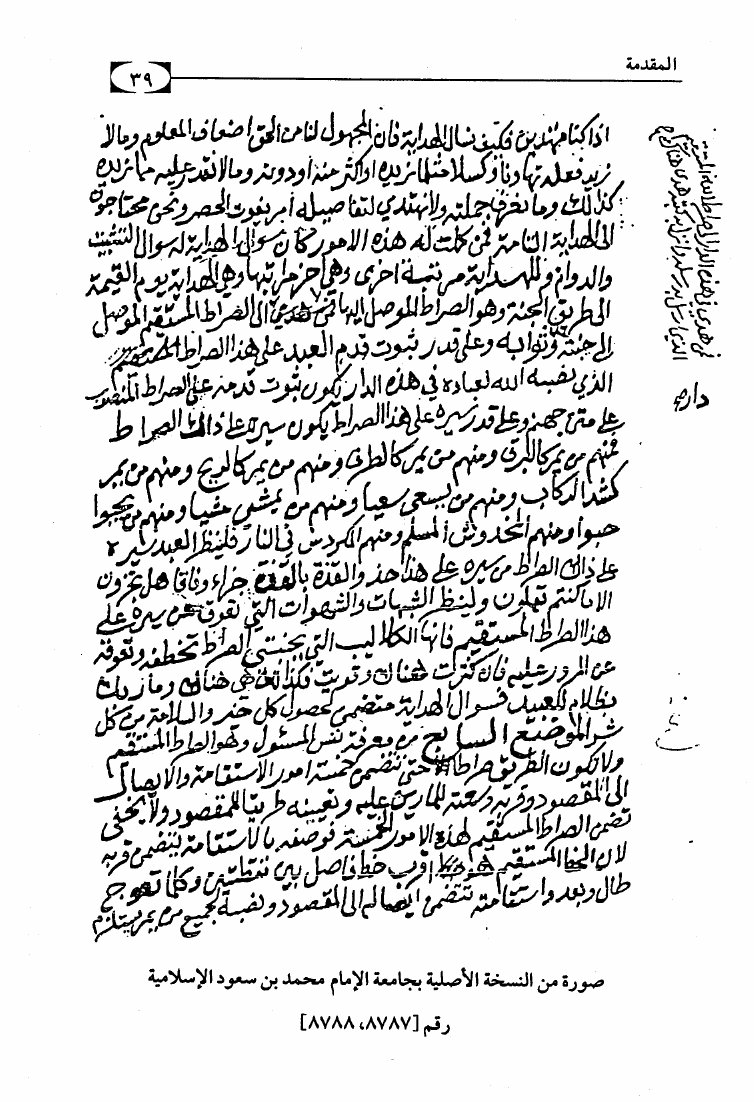 المقدمة
٣٩
اذا كنا مهتدين فكيف نسال الهداية فان المجهول لنا من الحق اضعاف المعلوم ومالا
نريد فعله تهاونا وكسلا مثل ما نريده او اكثر منه او دونه ومالا نقدر عليه مما نريده
كذلك وما نعرف جملته ولا نهتدي لتفاصيله أمر يفوت الحصر ونحن محتاجون
الى الهداية التامة فمن كملت له هذه الامور كان سؤال الهداية له سوال التثبيت
والدوام وللهداية مرتبة اخرى وهي اخر مراتبها وهي الهداية يوم القيمة
الى طريق الجنة وهو الصراط الموصل اليها فمن هدي الى الصراط المستقيم الموصل
الى جنته وثوابه وعلى قدر ثبوت قدم العبد على هذا الصراط
الذي نصبه الله لعباده في هذه الدار يكون ثبوت قدمه على الصراط المنصوب
على متن جهنم وعلى قدر سيره على هذا الصراط يكون سيره على ذلك الصراط
فمنهم من يمر كالبرق ومنهم من يمر كالطرف ومنهم من يمر كالريح ومنهم من يمر
كشد الركاب ومنهم من يسعى سعيا ومنهم من يمشي مشيا ومنهم من يحبوا
حبوا ومنهم المخدوش المسلم ومنهم المكردس في النار فلينظر العبد سيره
على ذلك الصراط من سيره على هذا حذو القذة بالقذة جزاء وفاقا هل تجزون
الا ما كنتم تعملون ولينظر الشبهات والشهوات التي تعوقه عن سيره على
هذا الصراط المستقيم فانها الكلاليب التي بجنبتي الصراط تخطفه وتعوقه
عن المرور عليه فان كثرت هنا وقويت فكذلك هي هناك وما ربك
بظلام للعبيد فسوال الهداية متضمن لحصول كل خير والسلامة من كل
شر الموضع السابع من معرفة نفس المسئول وهو الصراط المستقيم
ولا تكون الطريق صراطا حتى تتضمن خمسة امور الاستقامة والايصال
الى المقصود وقربه وسعته للمارين عليه وتعيينه طريقا للمقصود ولا يخفى
تضمن الصراط المستقيم لهذه الامور الخمسة فوصفه بالاستقامة يتضمن قربه
لان الخط المستقيم هو اقرب خط فاصل بين نقطتين وكلما تعوج
طال وبعد واستقامته تتضمن ايصاله الى المقصود ونصبه لجميع من يمر يستلزم
فمن هدي في هذه الدار الى صراط الله المستقيم
الذي ارسل به رسله وانزل به كتبه هدي هناك
داره
صورة من النسخة الأصلية بجامعة الإمام محمد بن سعود الإسلامية
رقم [٨٧٨٧، ٨٧٨٨]